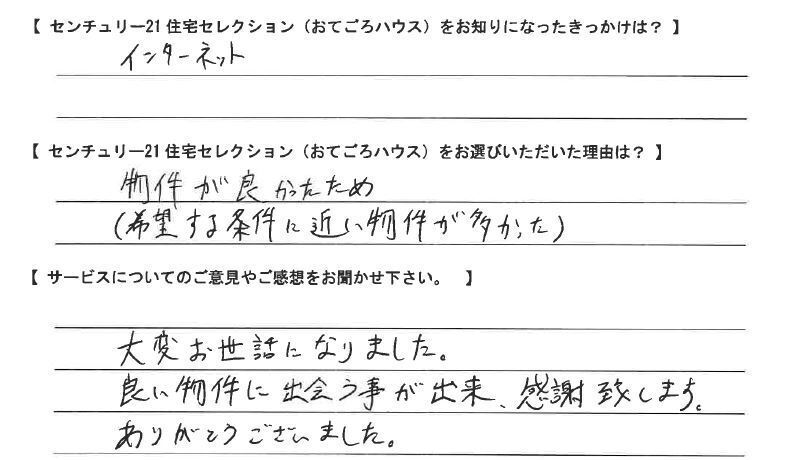 【 センチュリー21 住宅セレクション（おてごろハウス）をお知りになったきっかけは？ 】
インターネット
【 センチュリー21 住宅セレクション（おてごろハウス）をお選びいただいた理由は？ 】
物件が良かったため
(希望する条件に近い物件が多かった)
【 サービスについてのご意見やご感想をお聞かせ下さい。 】
大変お世話になりました。
良い物件に出会う事が出来、感謝致します。
ありがとうございました。